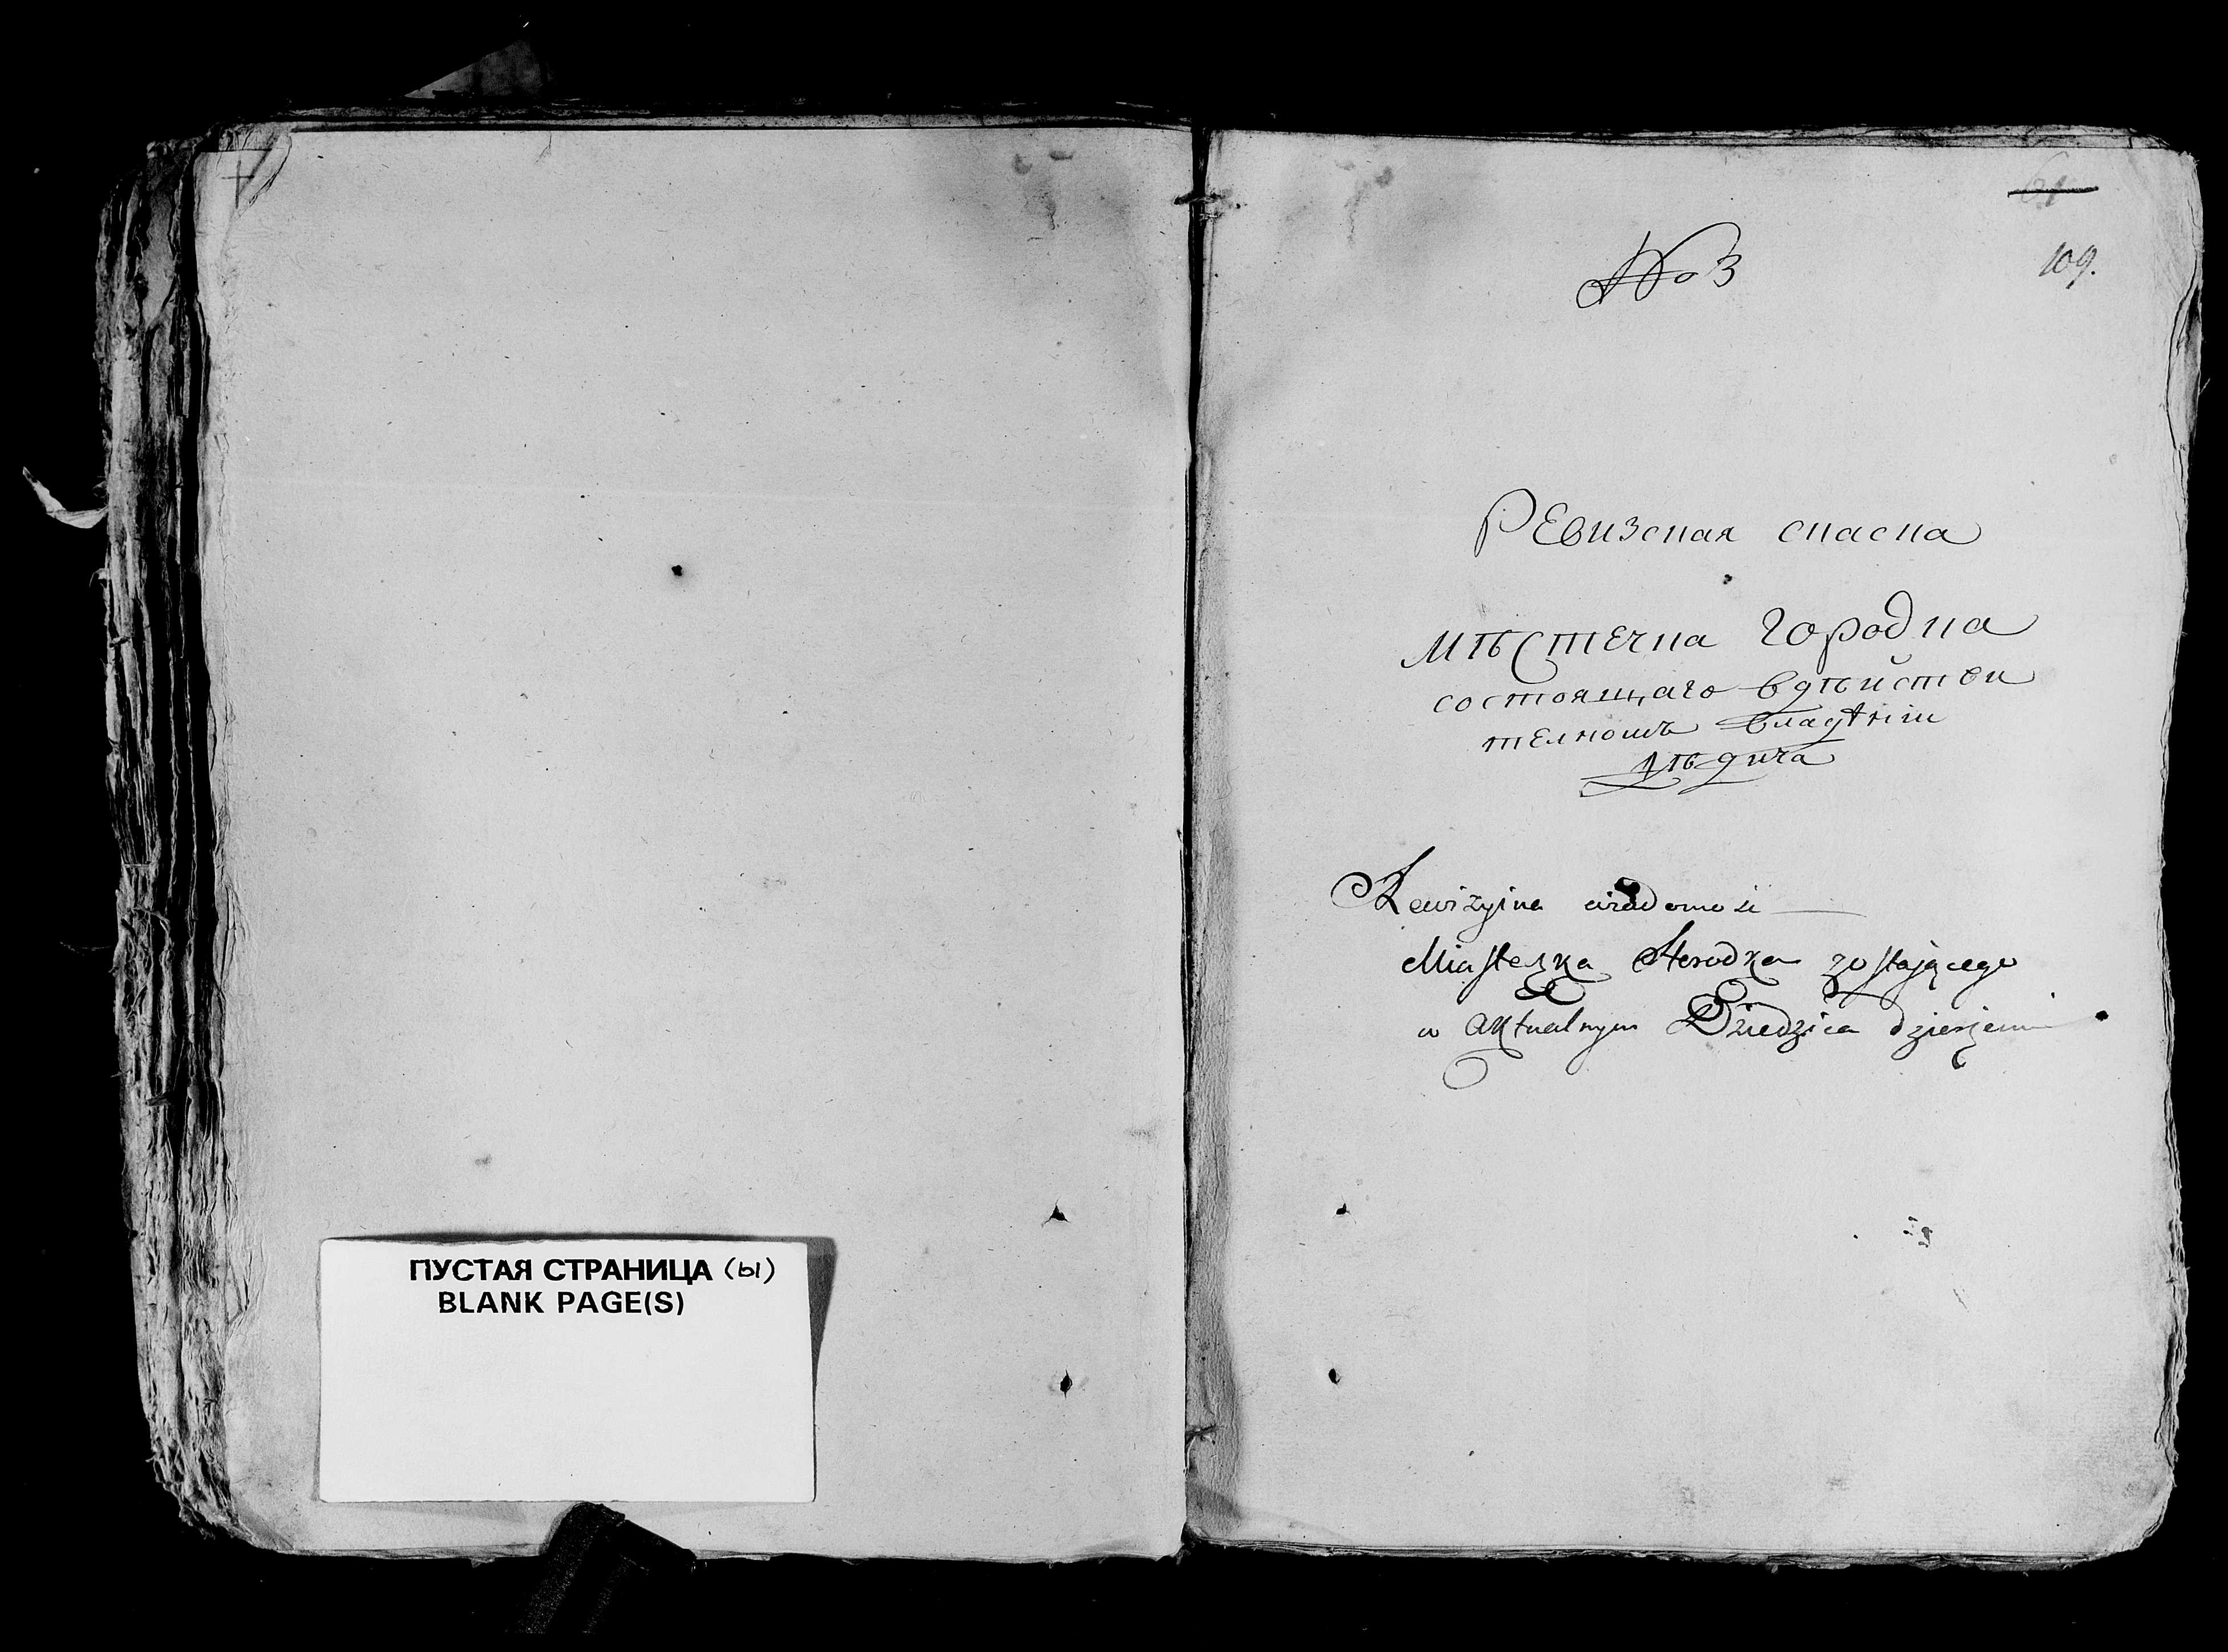 ПУСТАЯ СТРАНИЦА (Ы)
BLANK PAGE(S)
61
109.
No 3
Ревизская сказка
мѣстечка Городка
состоящаго в дѣйстви
телномъ владѣнiи
дѣдича
Rewizyina wiadomość
Miasteczka Horodka zostającego
w aktualnym Dziedzica dzierżeniu